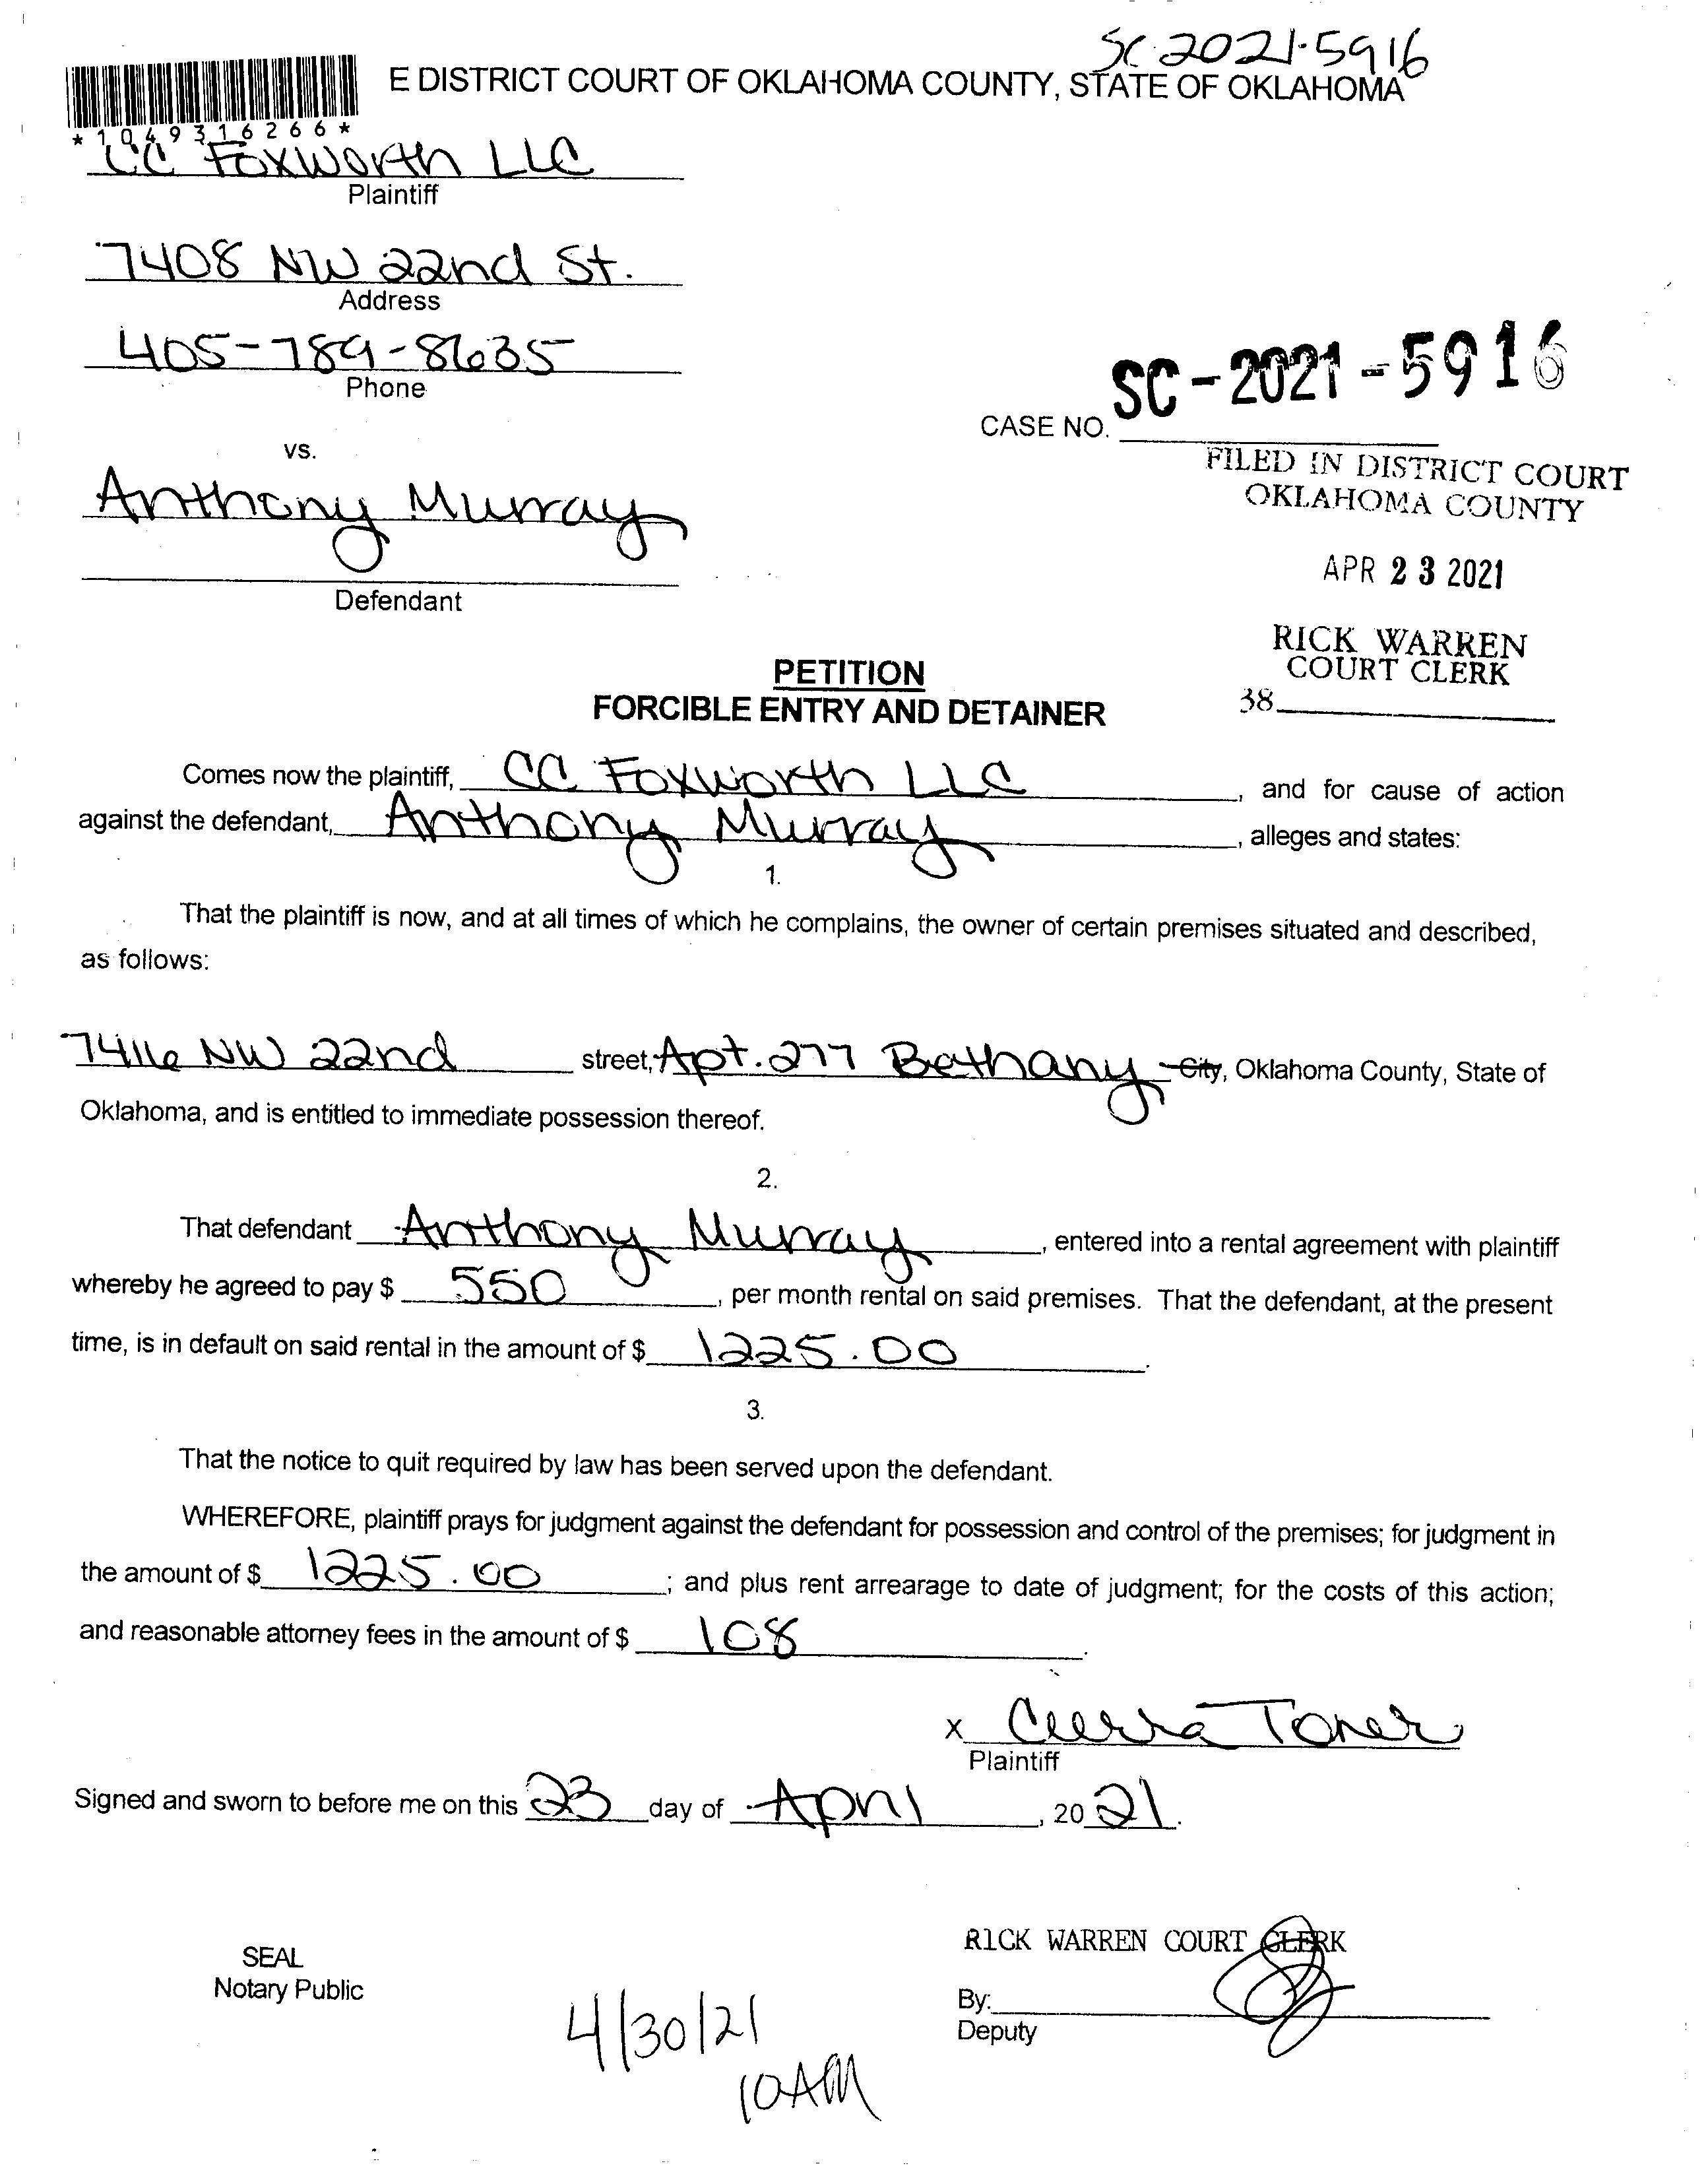 SC 2021-5916
E DISTRICT COURT OF OKLAHOMA COUNTY, STATE OF OKLAHOMA
*1049316266*
CC Foxworth LLC
Plaintiff
7408 NW 22nd St.
Address
405-789-8635
Phone
SC-2021-5916
CASE NO.
vs.
FILED IN DISTRICT COURT
OKLAHOMA COUNTY
Anthony Murray
APR 23 2021
Defendant
RICK WARREN
COURT CLERK
38
PETITION
FORCIBLE ENTRY AND DETAINER
Comes now the plaintiff, CC Foxworth LLC, and for cause of action
against the defendant, Anthony Murray, alleges and states:
1.
That the plaintiff is now, and at all times of which he complains, the owner of certain premises situated and described,
as follows:
7416 NW 22nd street, Apt. 277 Bethany City, Oklahoma County, State of
Oklahoma, and is entitled to immediate possession thereof.
2.
That defendant Anthony Murray, entered into a rental agreement with plaintiff
whereby he agreed to pay $ 550, per month rental on said premises. That the defendant, at the present
time, is in default on said rental in the amount of $ 1225.00.
3.
That the notice to quit required by law has been served upon the defendant.
WHEREFORE, plaintiff prays for judgment against the defendant for possession and control of the premises; for judgment in
the amount of $ 1225.00; and plus rent arrearage to date of judgment; for the costs of this action;
and reasonable attorney fees in the amount of $ 108.
x Cierra Toner
Plaintiff
Signed and sworn to before me on this 23 day of April, 2021.
RICK WARREN COURT CLERK
SEAL
Notary Public
By:
Deputy
4/30/21
10AM